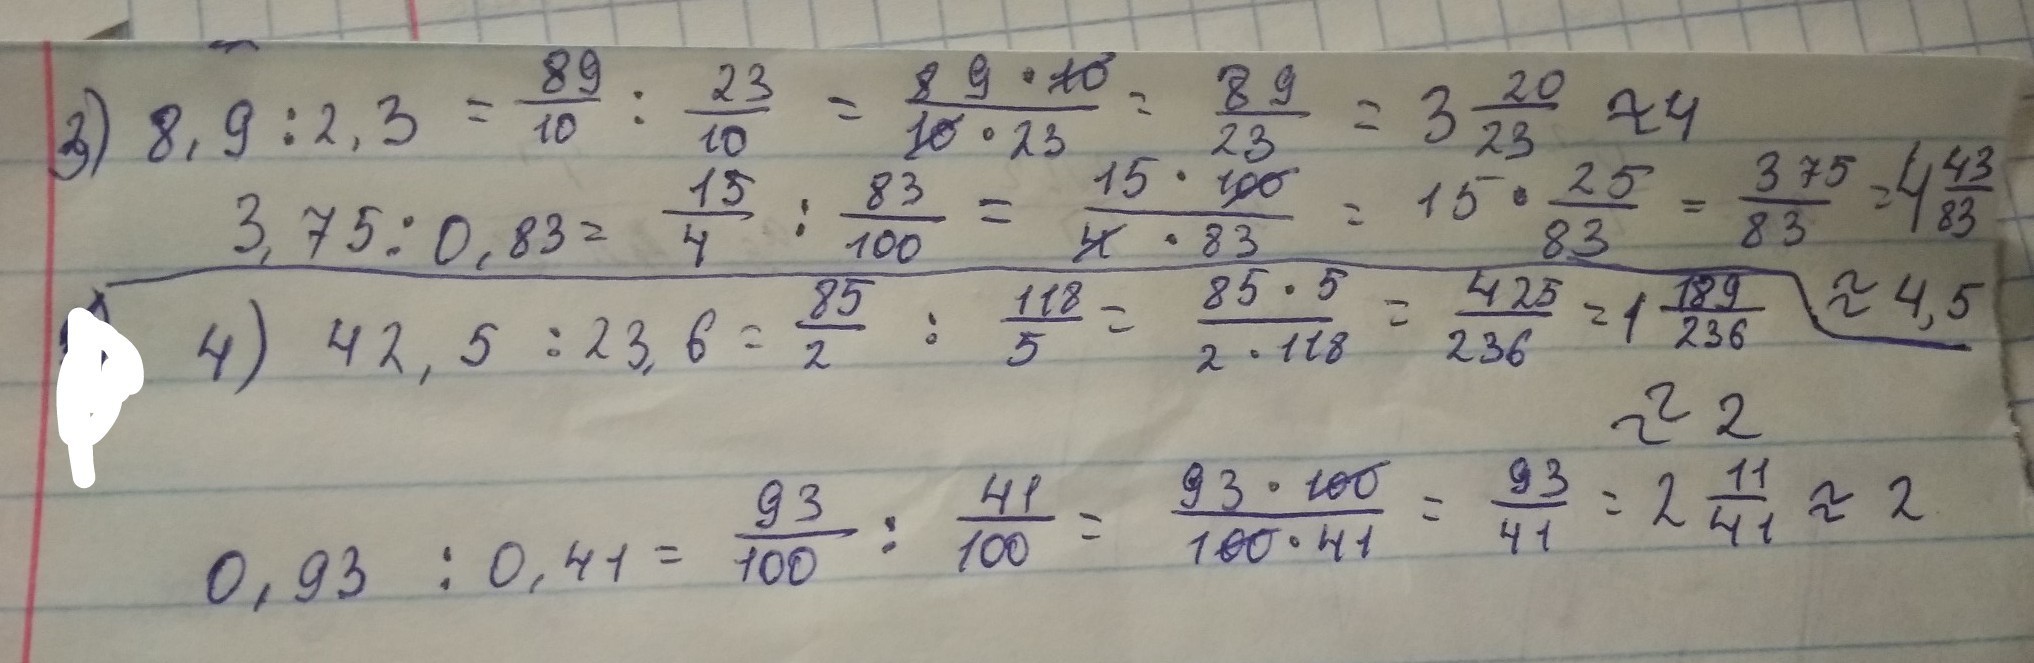 3) 8,9 : 2,3 = 89/10 : 23/10 = 89·10/10·23 = 89/23 = 3 20/23 ≈4
3,75 : 0,83 = 15/4 : 83/100 = 15·100/4·83 = 15·25/83 = 375/83 = 4 43/83
≈ 4,5
4) 42,5 : 23,6 = 85/2 : 118/5 = 85·5/2·118 = 425/236 = 1 189/236
≈ 2
0,93 : 0,41 = 93/100 : 41/100 = 93·100/100·41 = 93/41 = 2 11/41 ≈ 2